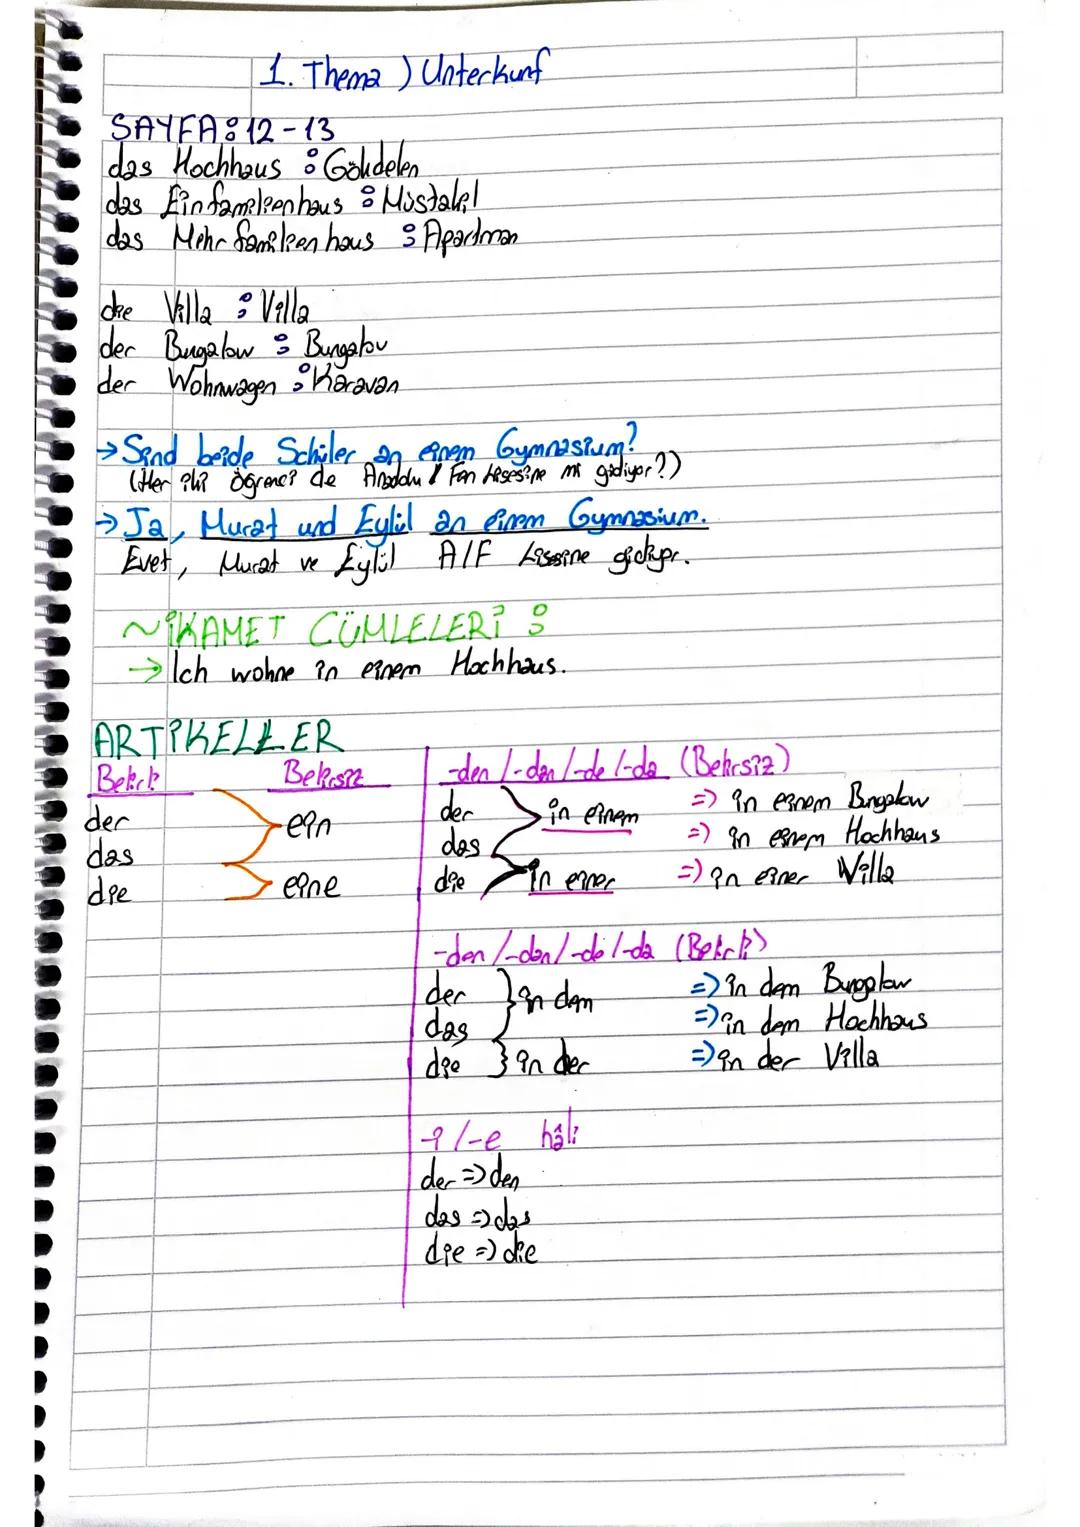 1. Thema ) Unterkunf
SAYFA: 12-13
das Hochhaus : Gökdelen
das Einfamilienhaus : Müstakil
das Mehrfamilienhaus : Apartman
die Villa : Villa
der Bugalow : Bungalov
der Wohnwagen : Karavan
→ Sind beide Schüler an einem Gymnasium?
(Her iki öğrenci de Anadolu / Fen Lisesine mi gidiyor?)
→ Ja, Murat und Eylül an einem Gymnasium.
Evet, Murat ve Eylül A/F Lisesine gidiyor.
~İKAMET CÜMLELERİ :
→ Ich wohne in einem Hochhaus.
ARTİKELLER
Belirli Belirsiz
der
das
die
ein
eine
-den /-dan /-de /-da (Belirsiz)
der
das
die
in einem
in einer
=> in einem Bngalow
=> in einem Hochhaus
=> in einer Villa
-den /-dan /-de /-da (Belirli)
der
das
die
in dem
in der
=> in dem Bungalow
=> in dem Hochhaus
=> in der Villa
-i /-e hâli
der => den
das => das
die => die